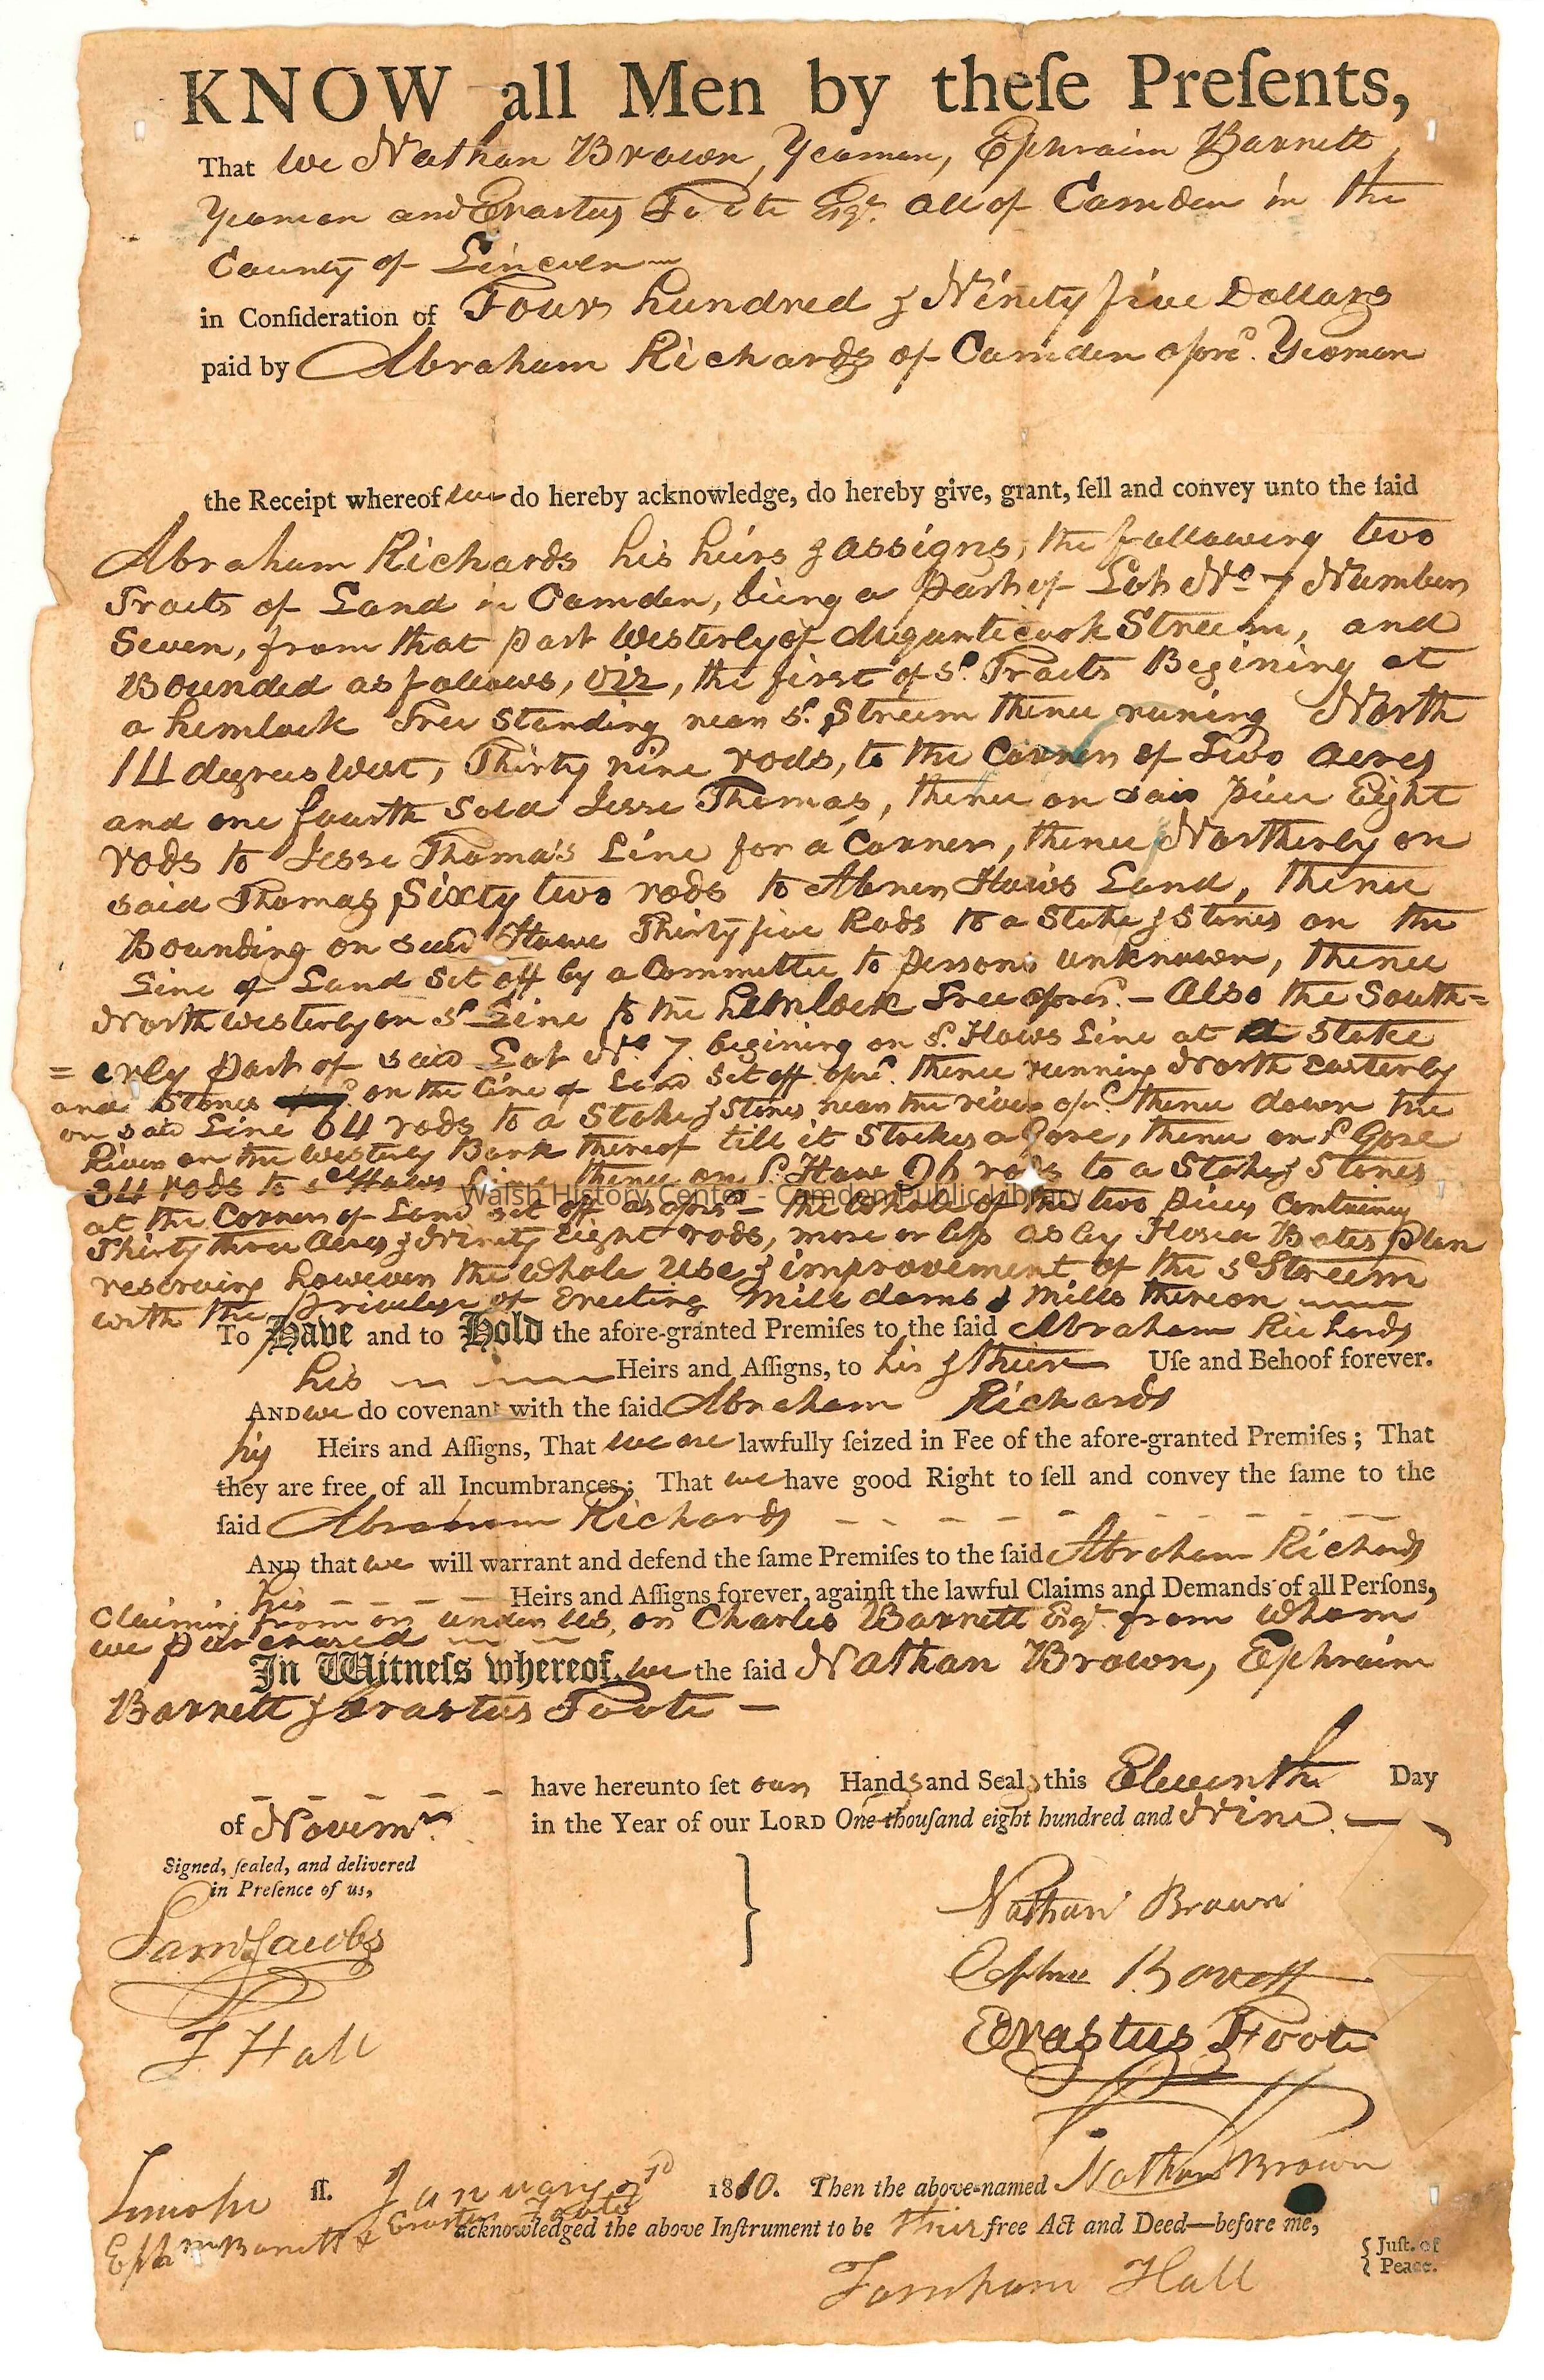 KNOW all Men by theſe Preſents,
That we Nathan Brown, Yeoman, Ephraim Barrett,
Yeoman and Erastus Foote Esqr. all of Camden in the
County of Lincoln
in Conſideration of Four hundred & Ninety five Dollars
paid by Abraham Richards of Camden afored. Yeoman
the Receipt whereof we do hereby acknowledge, do hereby give, grant, ſell and convey unto the ſaid
Abraham Richards his heirs & assigns, the following two
Tracts of Land in Camden, being a part of Lot No 7 Number
Seven, from that part Westerly of Megunticook Streem, and
Bounded as follows, viz, the first of sd. Tracts Begining at
a hemlock Tree Standing near sd. Streem thence runing North
14 degrees West, Thirty nine rods, to the Corner of Two acres
and one fourth Sold Jesse Thomas, thence on said piece Eight
rods to Jesse Thomas's Line for a Corner, thence Northerly on
said Thomas Sixty two rods to Abner Haws Land, thence
Bounding on said Hawe Thirty five Rods to a Stake & Stones on the
Line of Land Set off by a Committee to persons unknown, thence
Northwesterly on sd Line to the hemlock Tree afored. - Also the South=
= erly part of said Lot No. 7. begining on sd. Haws Line at a Stake
and Stones on the line of Land Set off afored. thence running North easterly
on said Line 64 rods to a Stake & Stones near the river afored. thence down the
River on the westerly Bank thereof till it Strikes a Gore, thence on sd Gore
34 rods to sd Haws Line thence on sd. Haw 26 rods to a Stake & Stones
Walsh History Center - Camden Public Library
at the Corner of Land set off as afored - the whole of the two pieces Containing
Thirty three Acres & Ninety Eight rods, more or less as by Hosea Bates plan
reserving however the whole Use & improvement of the sd Streem
with the priviledge of Erecting Mill dams & Mills thereon
To Have and to Hold the afore-granted Premiſes to the ſaid Abraham Richards
his Heirs and Aſſigns, to his & their Uſe and Behoof forever.
AND we do covenant with the ſaid Abraham Richards
his Heirs and Aſſigns, That we are lawfully ſeized in Fee of the afore-granted Premiſes; That
they are free of all Incumbrances; That we have good Right to ſell and convey the ſame to the
ſaid Abraham Richards
AND that we will warrant and defend the ſame Premiſes to the ſaid Abraham Richards
his Heirs and Aſſigns forever, againſt the lawful Claims and Demands of all Perſons,
Claiming from or under us, or Charles Barrett Esqr. from whom
we purchased
In Witneſs whereof, we the ſaid Nathan Brown, Ephraim
Barrett & Erastus Foote -
have hereunto ſet our Hands and Seals this Eleventh Day
of Novemr. in the Year of our LORD One thouſand eight hundred and Nine.
Signed, ſealed, and delivered
in Preſence of us,
Saml Jacobs
F Hall
Nathan Brown
Ephm Barrett
Erastus Foote
Lincoln ſſ. January 1810. Then the above-named Nathan Brown
Ephm Barrett & Erastus Foote acknowledged the above Inſtrument to be their free Act and Deed—before me,
Farnham Hall
{ Juſt. of
Peace.